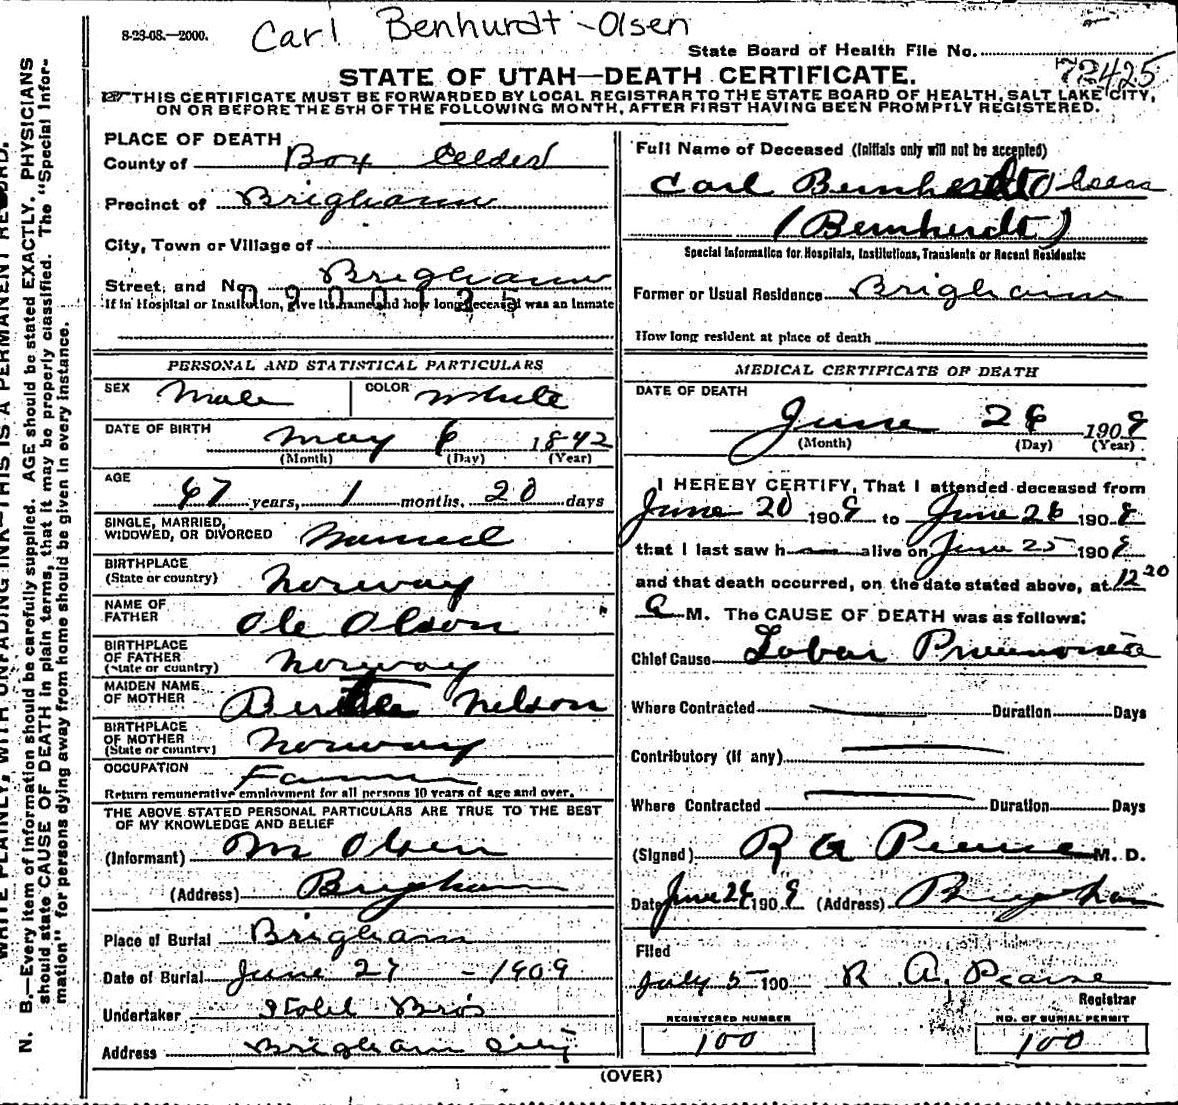 8-23-08.—2000.
Carl Benhurdt-Olsen
State Board of Health File No.
72425
STATE OF UTAH—DEATH CERTIFICATE.
THIS CERTIFICATE MUST BE FORWARDED BY LOCAL REGISTRAR TO THE STATE BOARD OF HEALTH, SALT LAKE CITY,
ON OR BEFORE THE 5TH OF THE FOLLOWING MONTH, AFTER FIRST HAVING BEEN PROMPTLY REGISTERED.
PLACE OF DEATH
County of Box Elder
Precinct of Brigham
City, Town or Village of
Street, and No. Brigham
If in Hospital or Institution, give its name and how long deceased was an inmate
PERSONAL AND STATISTICAL PARTICULARS
SEX Male COLOR White
DATE OF BIRTH May 6 1842
(Month) (Day) (Year)
AGE 67 years, 1 months, 20 days
SINGLE, MARRIED,
WIDOWED, OR DIVORCED Married
BIRTHPLACE
(State or country) Norway
NAME OF
FATHER Ole Olson
BIRTHPLACE
OF FATHER
(State or country) Norway
MAIDEN NAME
OF MOTHER Nelson
BIRTHPLACE
OF MOTHER
(State or country) Norway
OCCUPATION Farmer
Return remunerative employment for all persons 10 years of age and over.
THE ABOVE STATED PERSONAL PARTICULARS ARE TRUE TO THE BEST
OF MY KNOWLEDGE AND BELIEF
(Informant) M Olsen
(Address) Brigham
Place of Burial Brigham
Date of Burial June 27 - 1909
Undertaker Stohl Bros
Address Brigham City
Full Name of Deceased (Initials only will not be accepted)
Carl Bernherdt Olsen
(Bernherdt)
Special Information for Hospitals, Institutions, Transients or Recent Residents:
Former or Usual Residence Brigham
How long resident at place of death
MEDICAL CERTIFICATE OF DEATH
DATE OF DEATH
June 26 1909
(Month) (Day) (Year)
I HEREBY CERTIFY, That I attended deceased from
June 20 1909 to June 26 1909
that I last saw h alive on June 25 1909
and that death occurred, on the date stated above, at 12 20
a M. The CAUSE OF DEATH was as follows:
Chief Cause Lobar Pneumonia
Where Contracted Duration Days
Contributory (if any)
Where Contracted Duration Days
(Signed) R A Pearse M. D.
Date June 26 1909 (Address) Brigham
Filed
July 5 190 R. A. Pearse
Registrar
REGISTERED NUMBER
100
NO. OF BURIAL PERMIT
100
(OVER)
WRITE PLAINLY, WITH UNFADING INK—THIS IS A PERMANENT RECORD.
N. B.—Every item of information should be carefully supplied. AGE should be stated EXACTLY. PHYSICIANS
should state CAUSE OF DEATH in plain terms, that it may be properly classified. The "Special Infor-
mation" for persons dying away from home should be given in every instance.